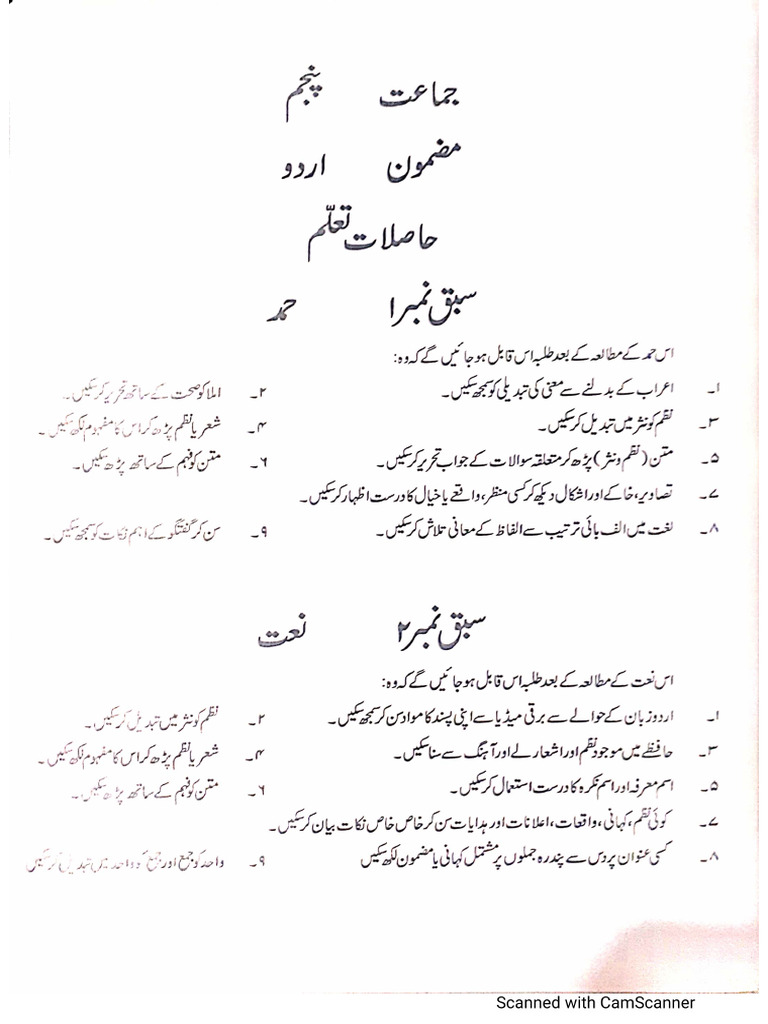 جماعت پنجم
مضمون اردو
حاصلات تعلّم
سبق نمبر ۱ حمد
اس حمد کے مطالعہ کے بعد طلبہ اس قابل ہو جائیں گے کہ وہ:
۱۔ اعراب کے بدلنے سے معنی کی تبدیلی کو سمجھ سکیں۔ ۲۔ املا کو صحت کے ساتھ تحریر کر سکیں۔
۳۔ نظم کو نثر میں تبدیل کر سکیں۔ ۴۔ شعر یا نظم پڑھ کر اس کا مفہوم لکھ سکیں۔
۵۔ متن (نظم و نثر) پڑھ کر متعلقہ سوالات کے جواب تحریر کر سکیں۔ ۶۔ متن کو فہم کے ساتھ پڑھ سکیں۔
۷۔ تصاویر، خاکے اور اشکال دیکھ کر کسی منظر، واقعے یا خیال کا درست اظہار کر سکیں۔
۸۔ لغت میں الف بائی ترتیب سے الفاظ کے معانی تلاش کر سکیں۔ ۹۔ سن کر گفتگو کے اہم نکات کو سمجھ سکیں۔
سبق نمبر ۲ نعت
اس نعت کے مطالعہ کے بعد طلبہ اس قابل ہو جائیں گے کہ وہ:
۱۔ اردو زبان کے حوالے سے برقی میڈیا سے اپنی پسند کا مواد سن کر سمجھ سکیں۔ ۲۔ نظم کو نثر میں تبدیل کر سکیں۔
۳۔ حافظے میں موجود نظم اور اشعار لے اور آہنگ سے سنا سکیں۔ ۴۔ شعر یا نظم پڑھ کر اس کا مفہوم لکھ سکیں۔
۵۔ اسم معرفہ اور اسم نکرہ کا درست استعمال کر سکیں۔ ۶۔ متن کو فہم کے ساتھ پڑھ سکیں۔
۷۔ کوئی نظم، کہانی، واقعات، اعلانات اور ہدایات سن کر خاص خاص نکات بیان کر سکیں۔
۸۔ کسی عنوان پر دس سے پندرہ جملوں پر مشتمل کہانی یا مضمون لکھ سکیں ۹۔ واحد کو جمع اور جمع کو واحد میں تبدیل کر سکیں
Scanned with CamScanner